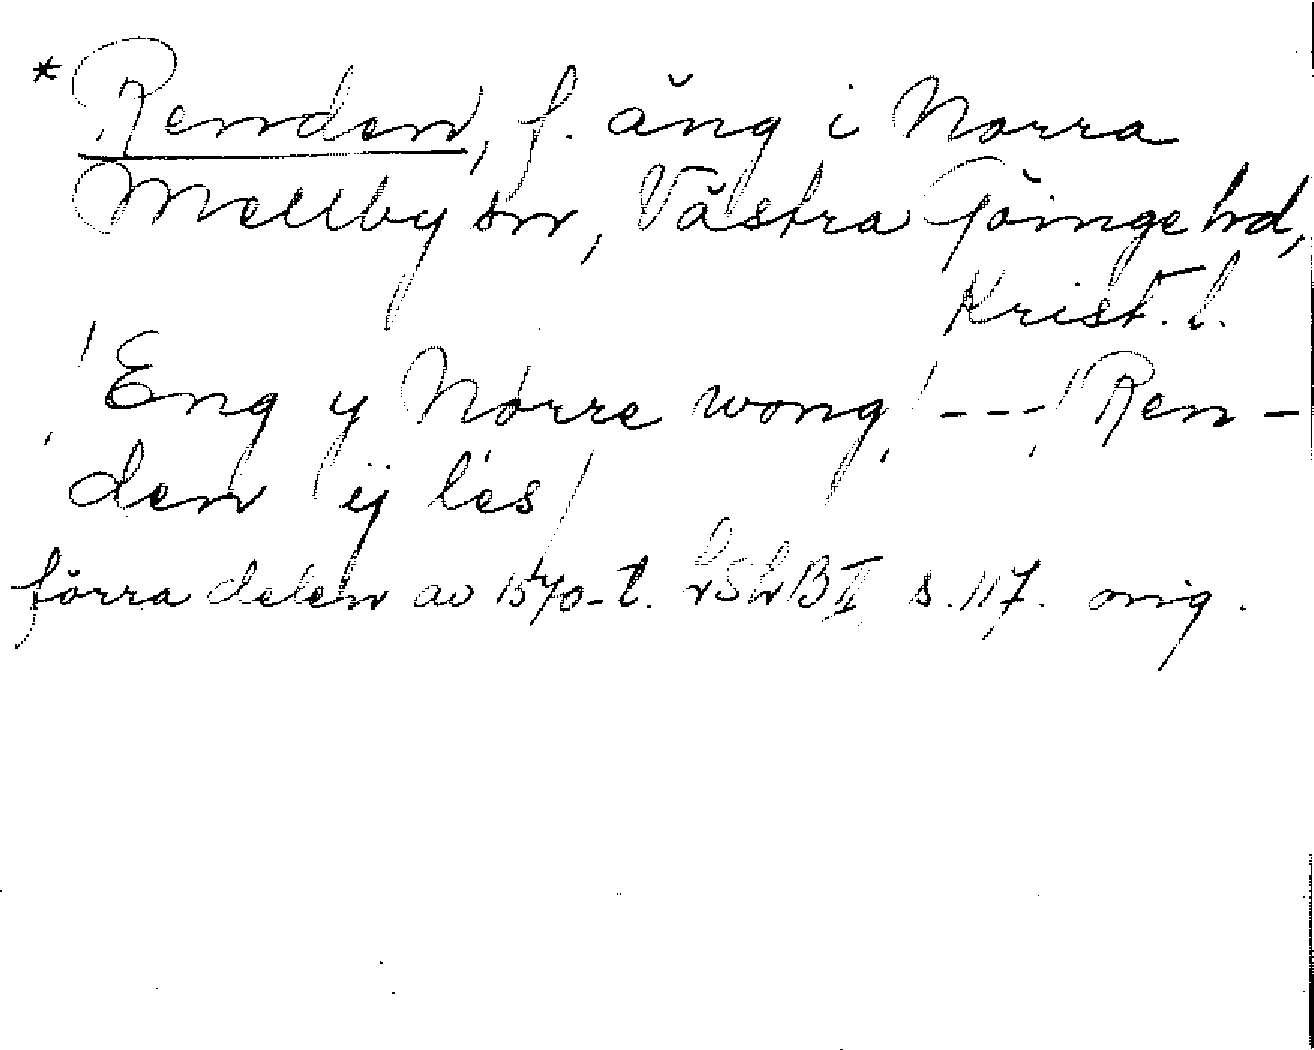 * Renden, f. äng i Norra
Mellby sn, Västra Göinge hd,
Krist. l.
/Eng y Nörre wong/ --- /Ren-
den ij les/
förra delen av 1570-t. LSLB II s. 117. orig.